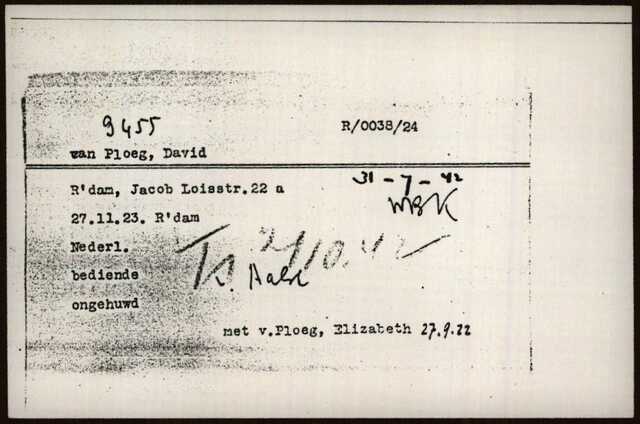 9455
R/0038/24
van Ploeg, David
R'dam, Jacob Loisstr.22 a
31-7-42
27.11.23. R'dam
WBK
Nederl.
2/10.42
bediende
ongehuwd
met v.Ploeg, Elizabeth 27.9.22